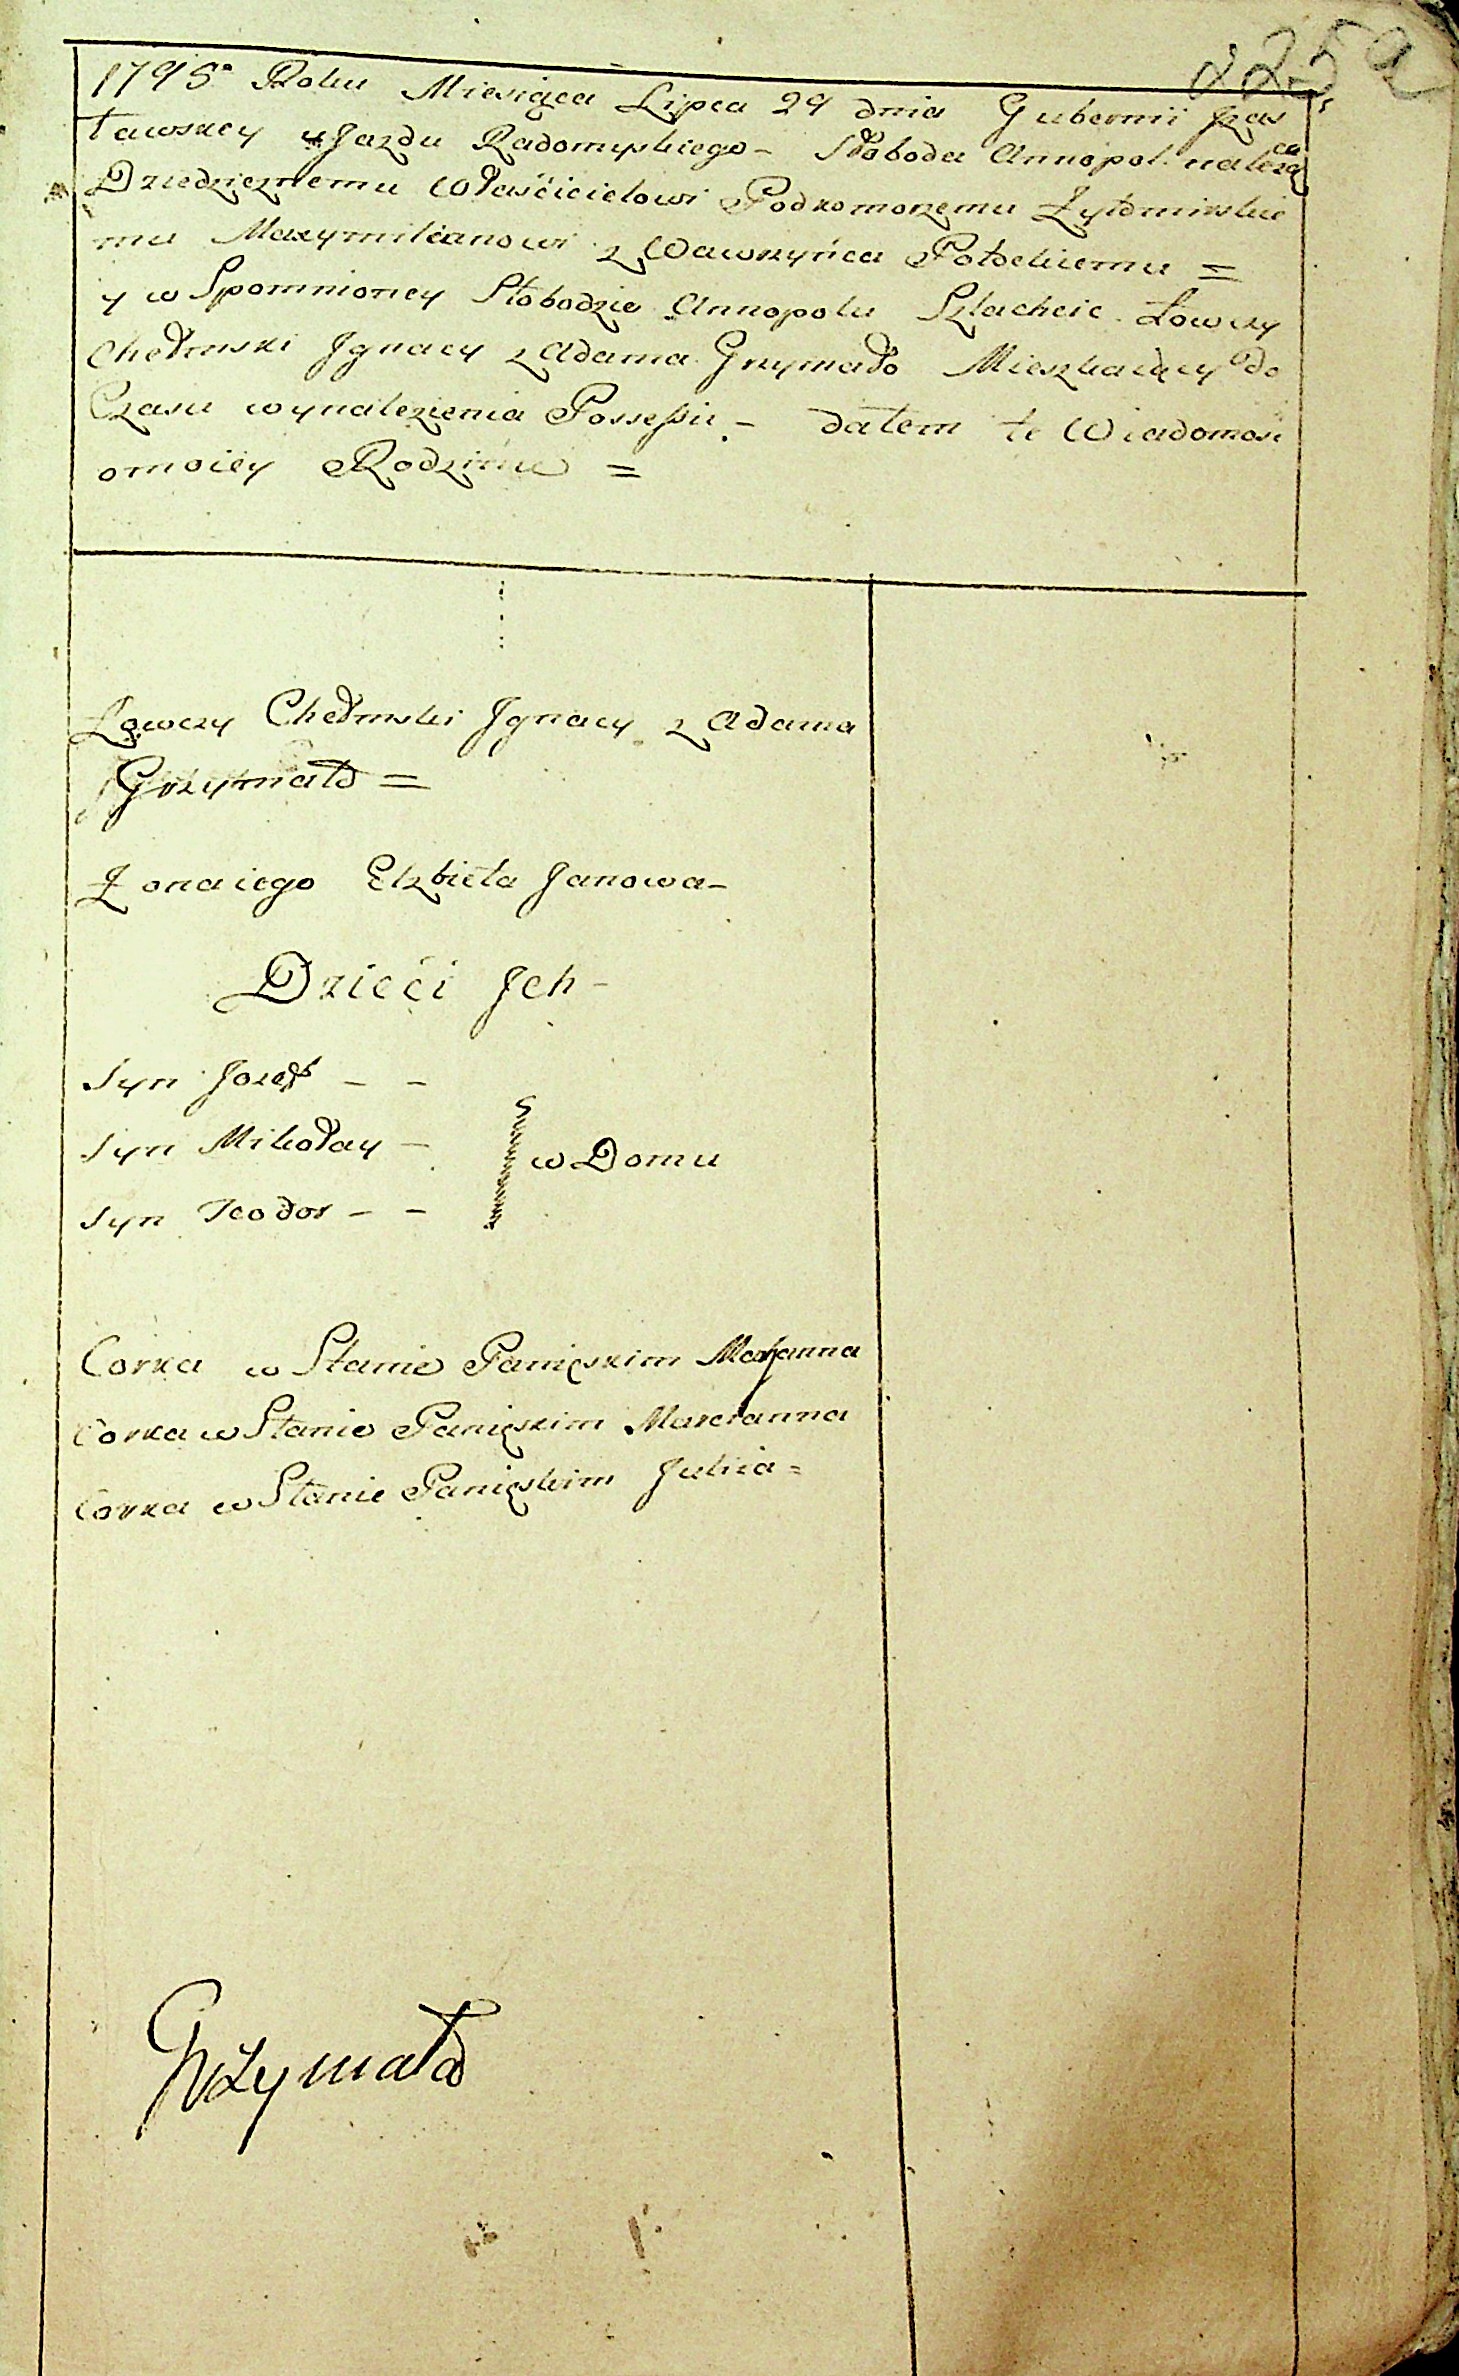 225a
1795º Roku Miesiąca Lipca 29 dnia Gubernii Jzas
ławskey ujazdu Radomyskiego – Słoboda Annopol należąca
Dziedzicznemu Właścicielowi Podkomorzemu Żytomirskie
mu Maxymilianowi z Wawrzyńca Potockiemu =
y w Spomnioney Słobodzie Annopolu Szlachcic Łowczy
Chełmski Jgnacy z Adama Grzymało Mieszkaiący do
Czasu wynalezienia Possessii – dałem te Wiadomość
omoiey Rodzinie =
Łowczy Chełmski Jgnacy z Adama
Grzymało =
Żona iego Elzbieta Janowa –
Dzieci Jch –
Syn Jozef – –
Syn Mikołay –
w Domu
Syn Teodor – –
Corka w Stanie Panięskim Maryanna
Corka w Stanie Panięskim Marcianna
Corka w Stanie Panięskim Julia =
Grzymało